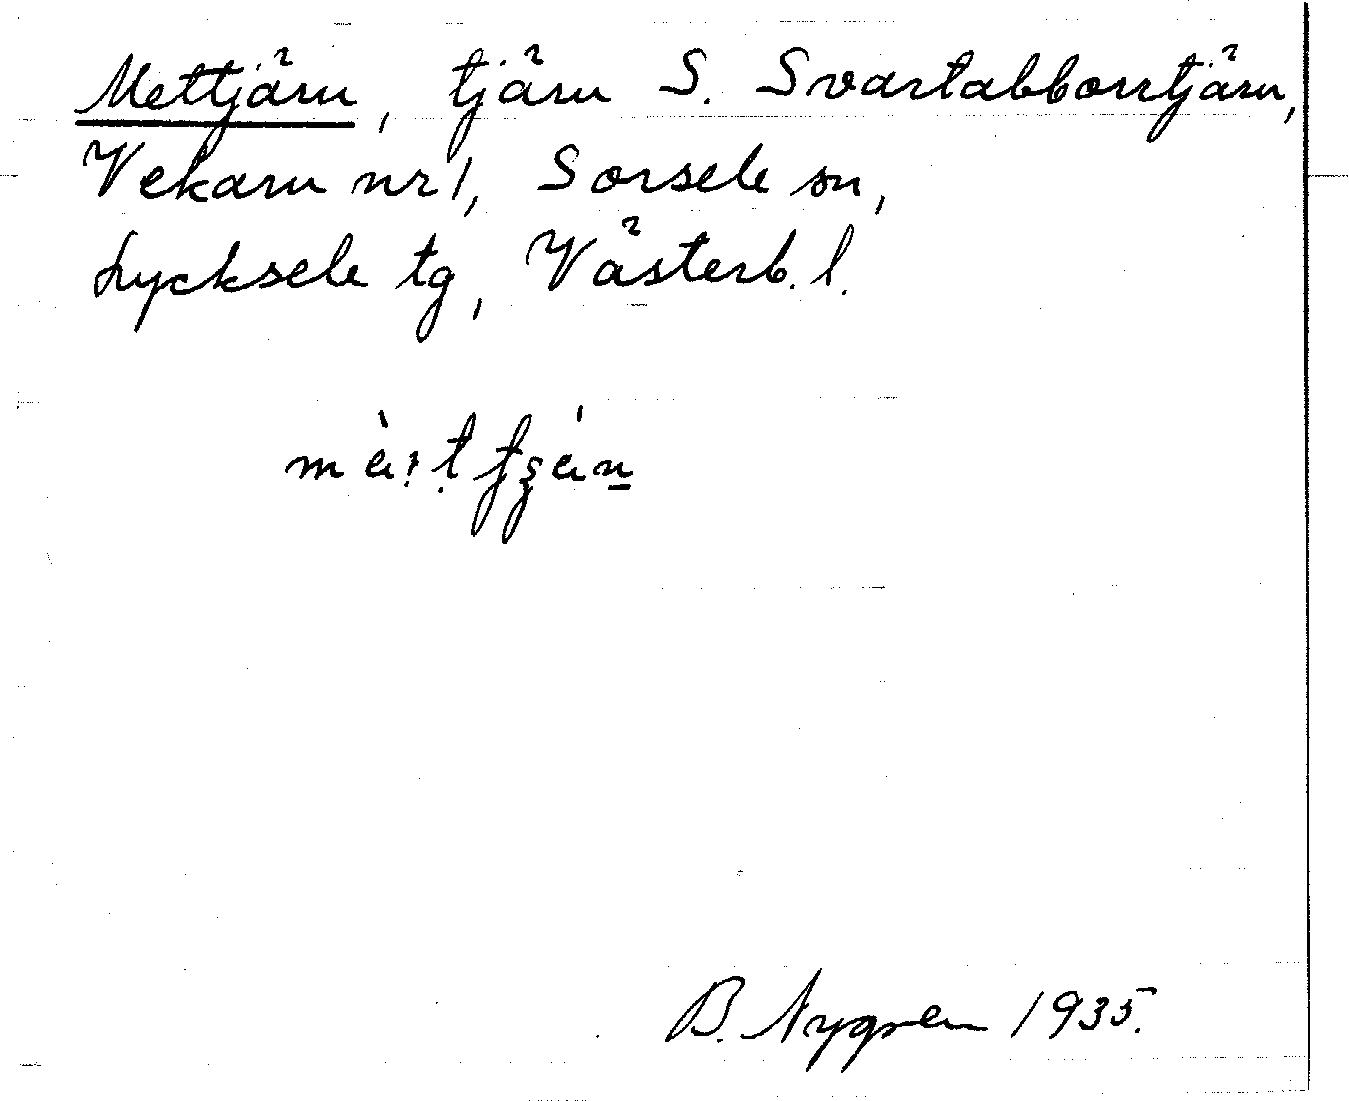 Mettjärn, tjärn S. Svartabborrtjärn,
Vekarn nr 1, Sorsele sn,
Lycksele tg, Västerb. l.
B. Nygren 1935.